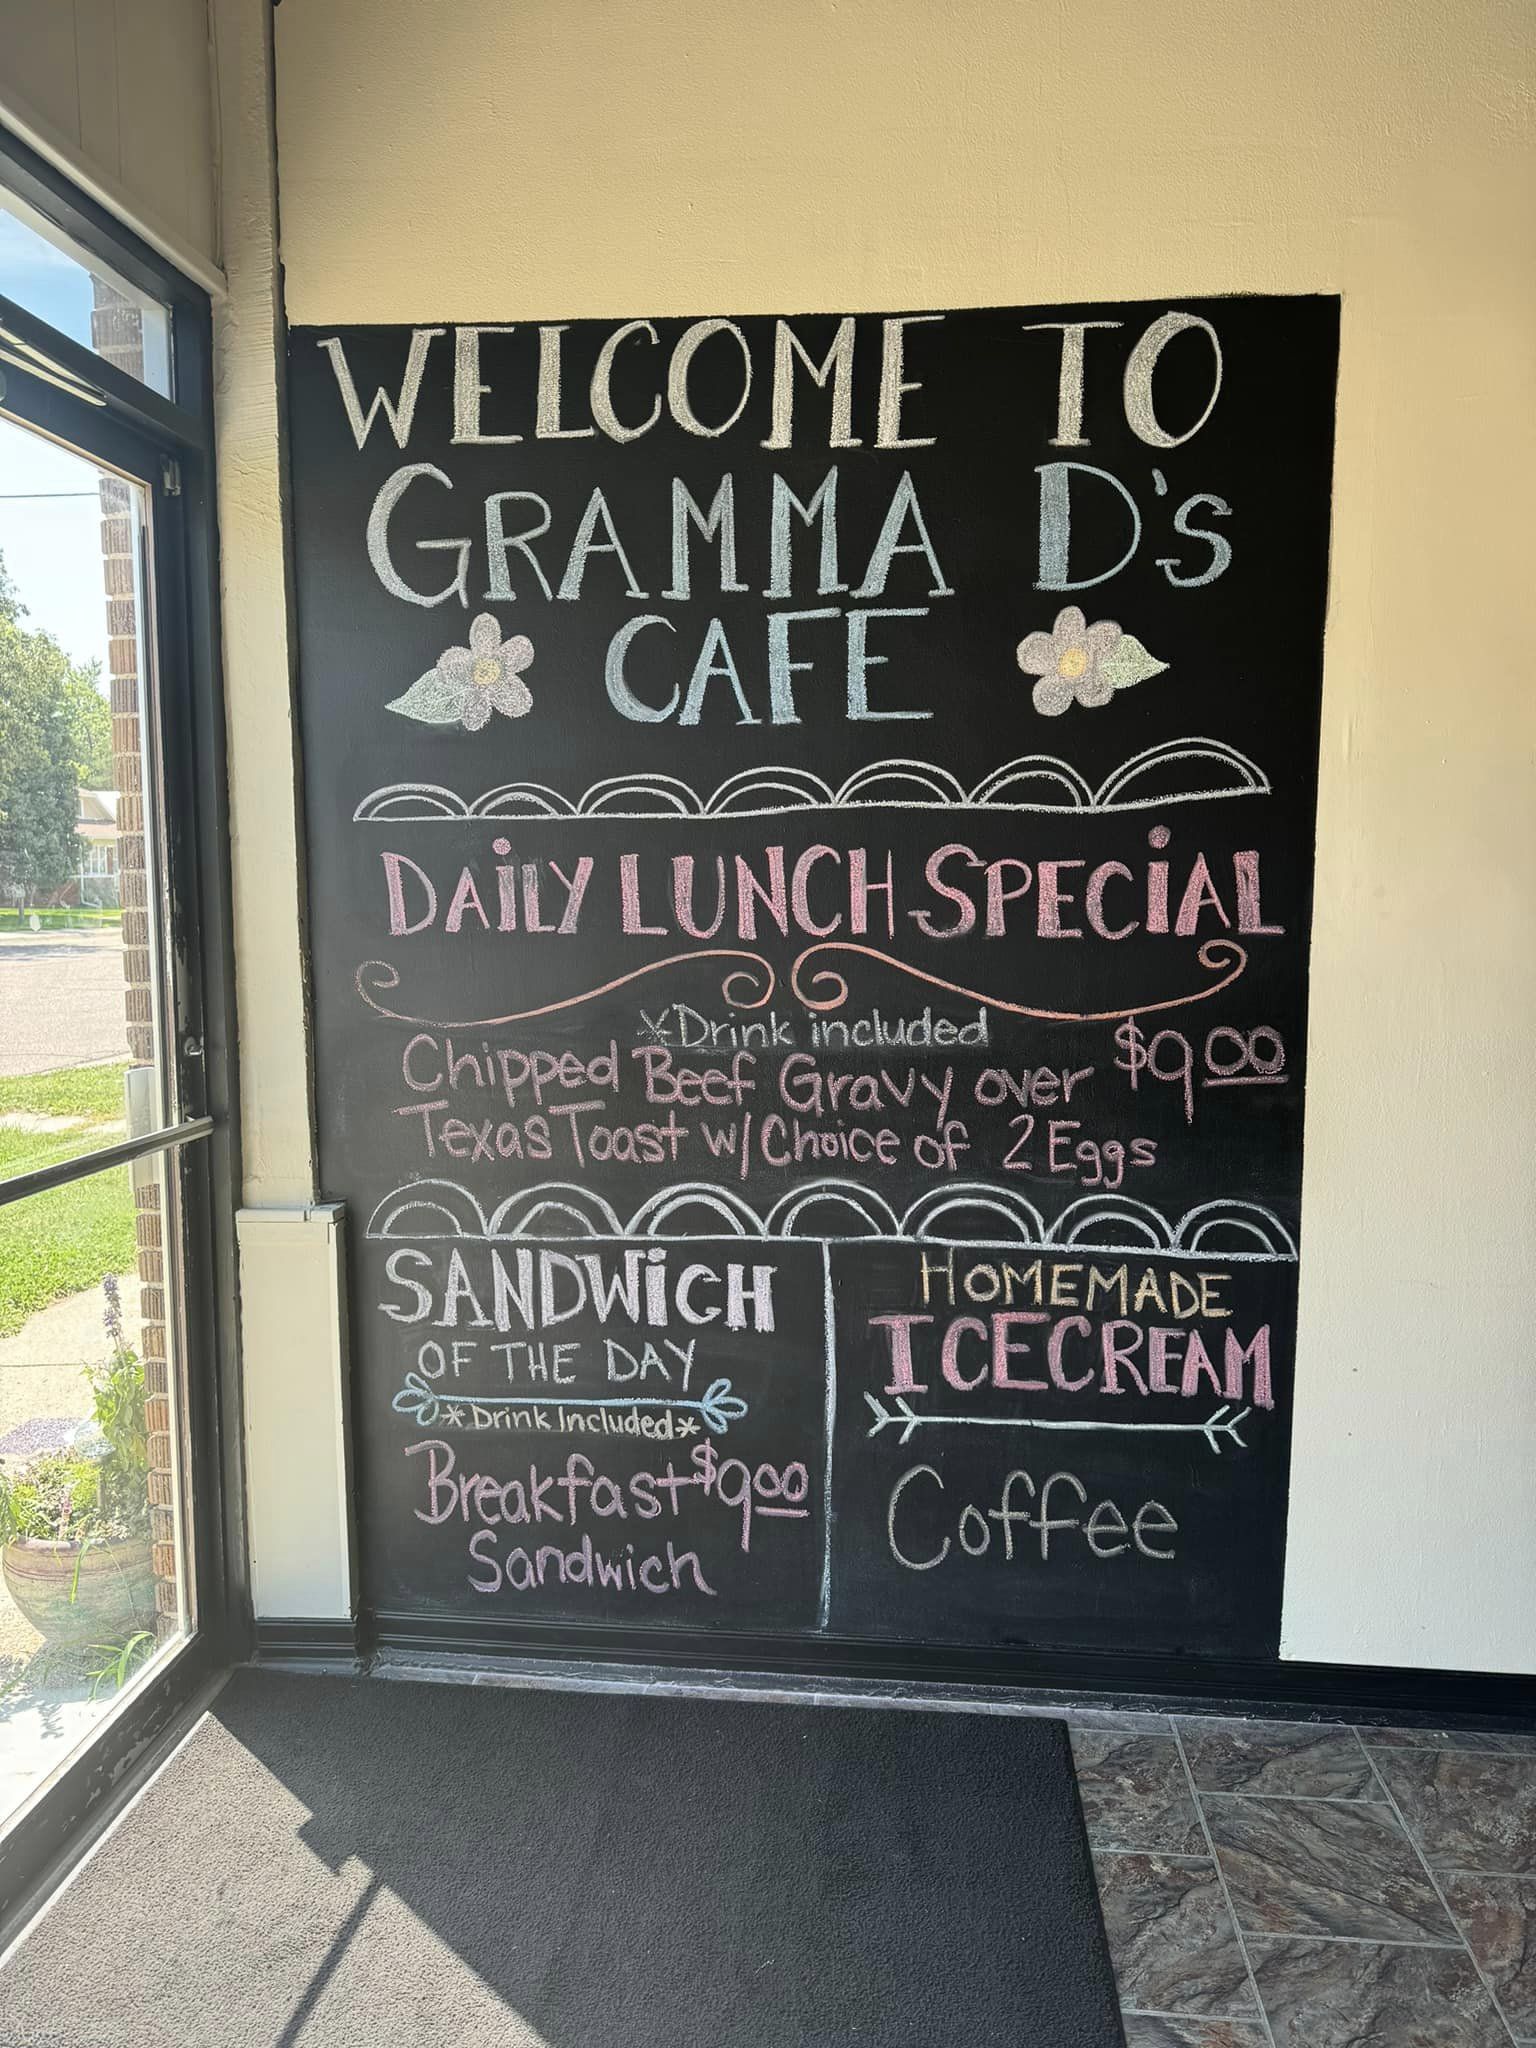 WELCOME TO
GRAMMA D's
CAFE
DAiLY LUNCH SPECiAL
*Drink included
Chipped Beef Gravy over $9.00
Texas Toast w/ Choice of 2 Eggs
SANDWiCH
OF THE DAY
*Drink Included*
Breakfast $9.00
Sandwich
HOMEMADE
ICECREAM
Coffee